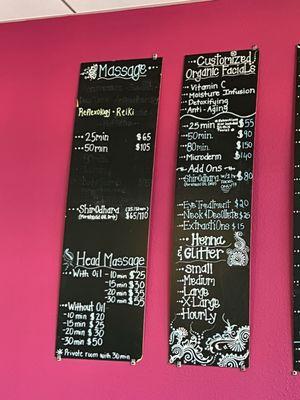 Massage
Reflexology - Reiki
25min $65
50min $105
Shirodhara (25/50min)
(Forehead Oil Drip) $65/110
Head Massage
With Oil - 10 min $25
- 15 min $30
- 25 min $35
Without Oil
- 10 min $20
- 15 min $25
- 20 min $30
- 30 min $50
* Private room with 30min
Customized
Organic Facials
Vitamin C
Moisture Infusion
Detoxifying
Anti-Aging
25min $55
50min $90
80min $150
Microderm $140
Add Ons
Shirodhara $80
Eye Treatment $20
Neck & Decollete $25
Extractions $15
Henna
& Glitter
Small
Medium
Large
X-Large
Hourly